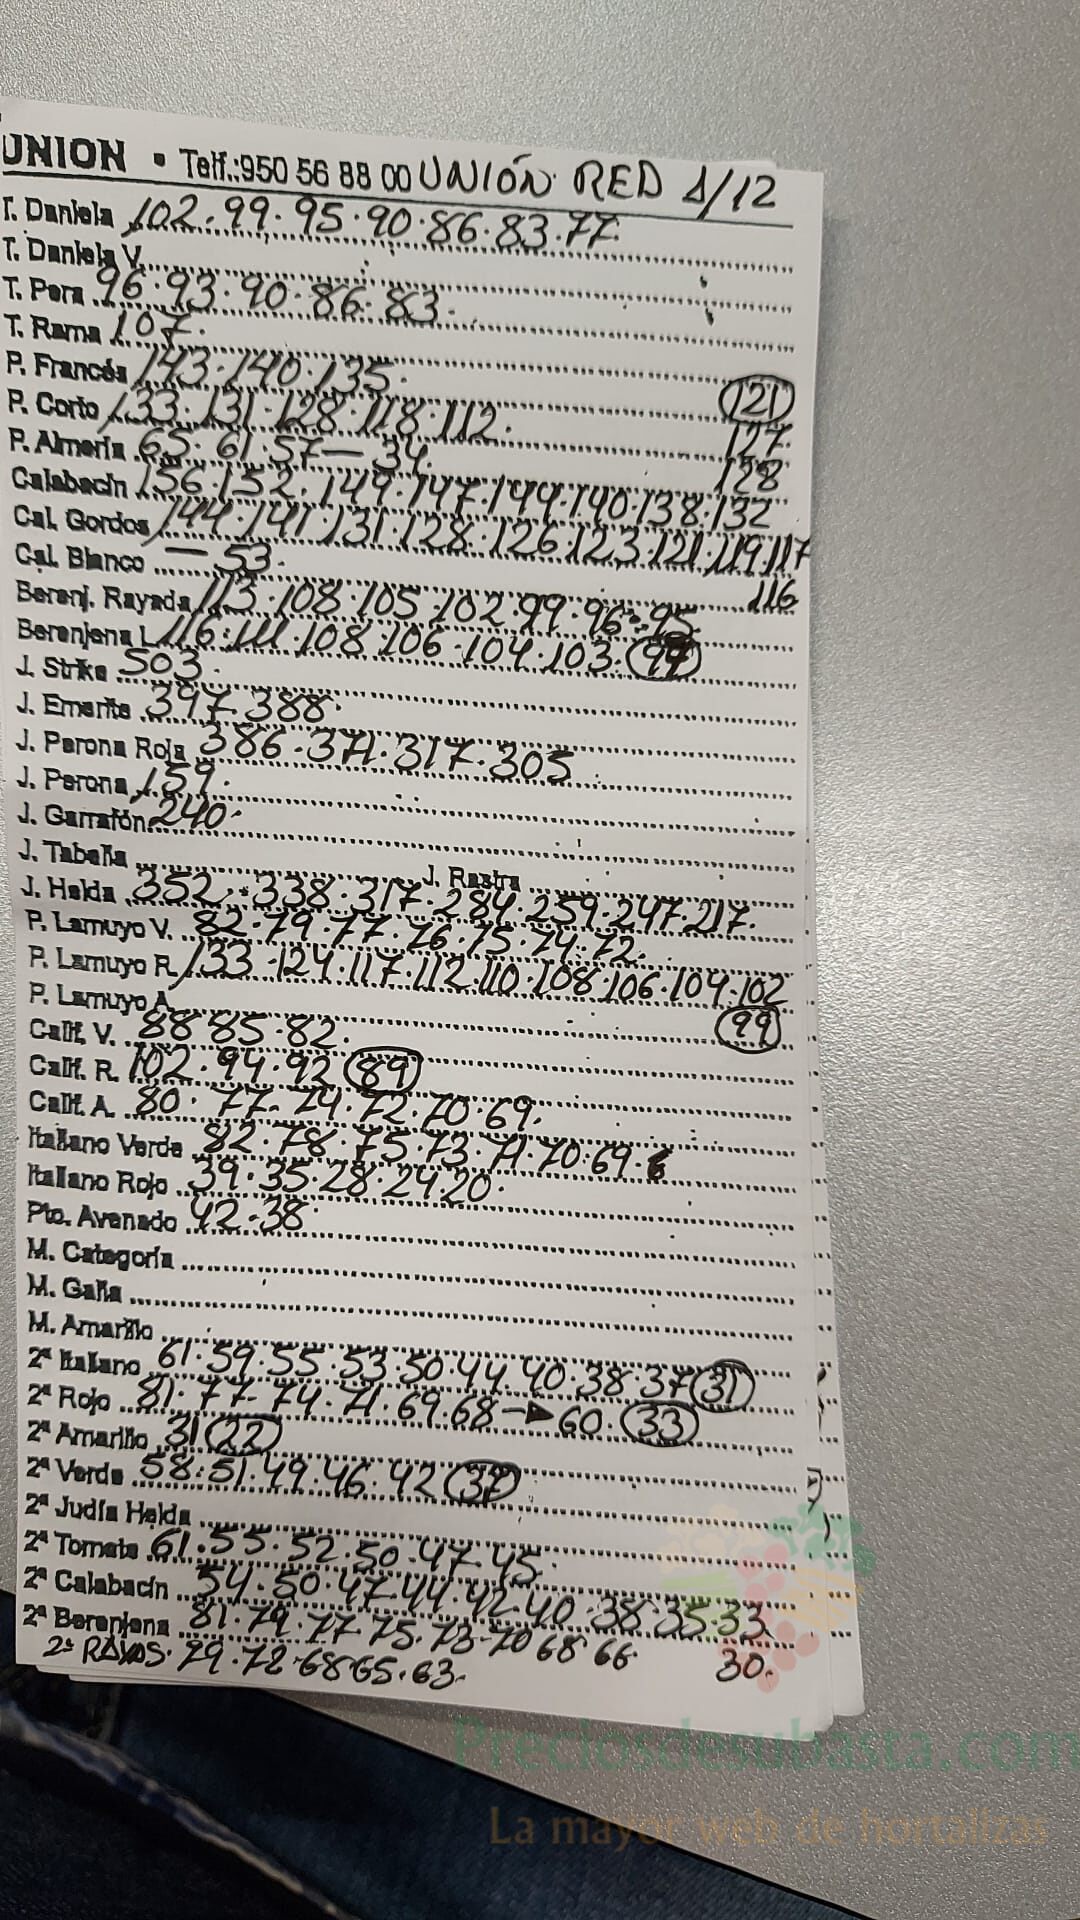 UNION • Telf.:950 56 88 00 UNIÓN RED 1/12
T. Daniela 102.99.95.90.86.83.77.
T. Daniela V.
T. Pera 96.93.90.86.83.
T. Rama 107.
P. Francés 143.140.135. (121)
P. Corto 133.131.128.118.112. 127.
P. Almería 65.61.57 — 34. 128
Calabacín 156.152.149.147.144.140.138.132
Cal. Gordos 144.141.131.128.126.123.121.119.117
Cal. Blanco — 53. 116
Berenj. Rayada 113.108.105.102.99.96.95
Berenjena L. 116.111.108.106.104.103.(99)
J. Strike 503.
J. Emerite 397.388.
J. Perona Roja 386.371.317.305
J. Perona 159.
J. Garrafón 240.
J. Tabella J. Rastra
J. Helda 352.338.317.284.259.247.217.
P. Lamuyo V. 82.79.77.76.75.74.72.
P. Lamuyo R. 133.124.117.112.110.108.106.104.102
P. Lamuyo A. (99)
Calif. V. 88.85.82.
Calif. R. 102.94.92 (89)
Calif. A. 80.77.74.72.70.69.
Italiano Verde 82.78.75.73.71.70.69.
Italiano Rojo 39.35.28.24.20.
Pto. Avenado 42.38.
M. Categoría
M. Galia
M. Amarillo
2ª Italiano 61.59.55.53.50.44.40.38.37 (31)
2ª Rojo 81.77.74.71.69.68 → 60.(33)
2ª Amarillo 31 (22)
2ª Verde 58.51.49.46.42 (37)
2ª Judía Helda
2ª Tomate 61.55.52.50.47.45.
2ª Calabacín 54.50.47.44.42.40.38.35.33
2ª Berenjena 81.79.77.75.73.70 68 66. 30.
2ª RAYAS. 79.72.68.65.63.
Preciosdesubasta.com
La mayor web de hortalizas